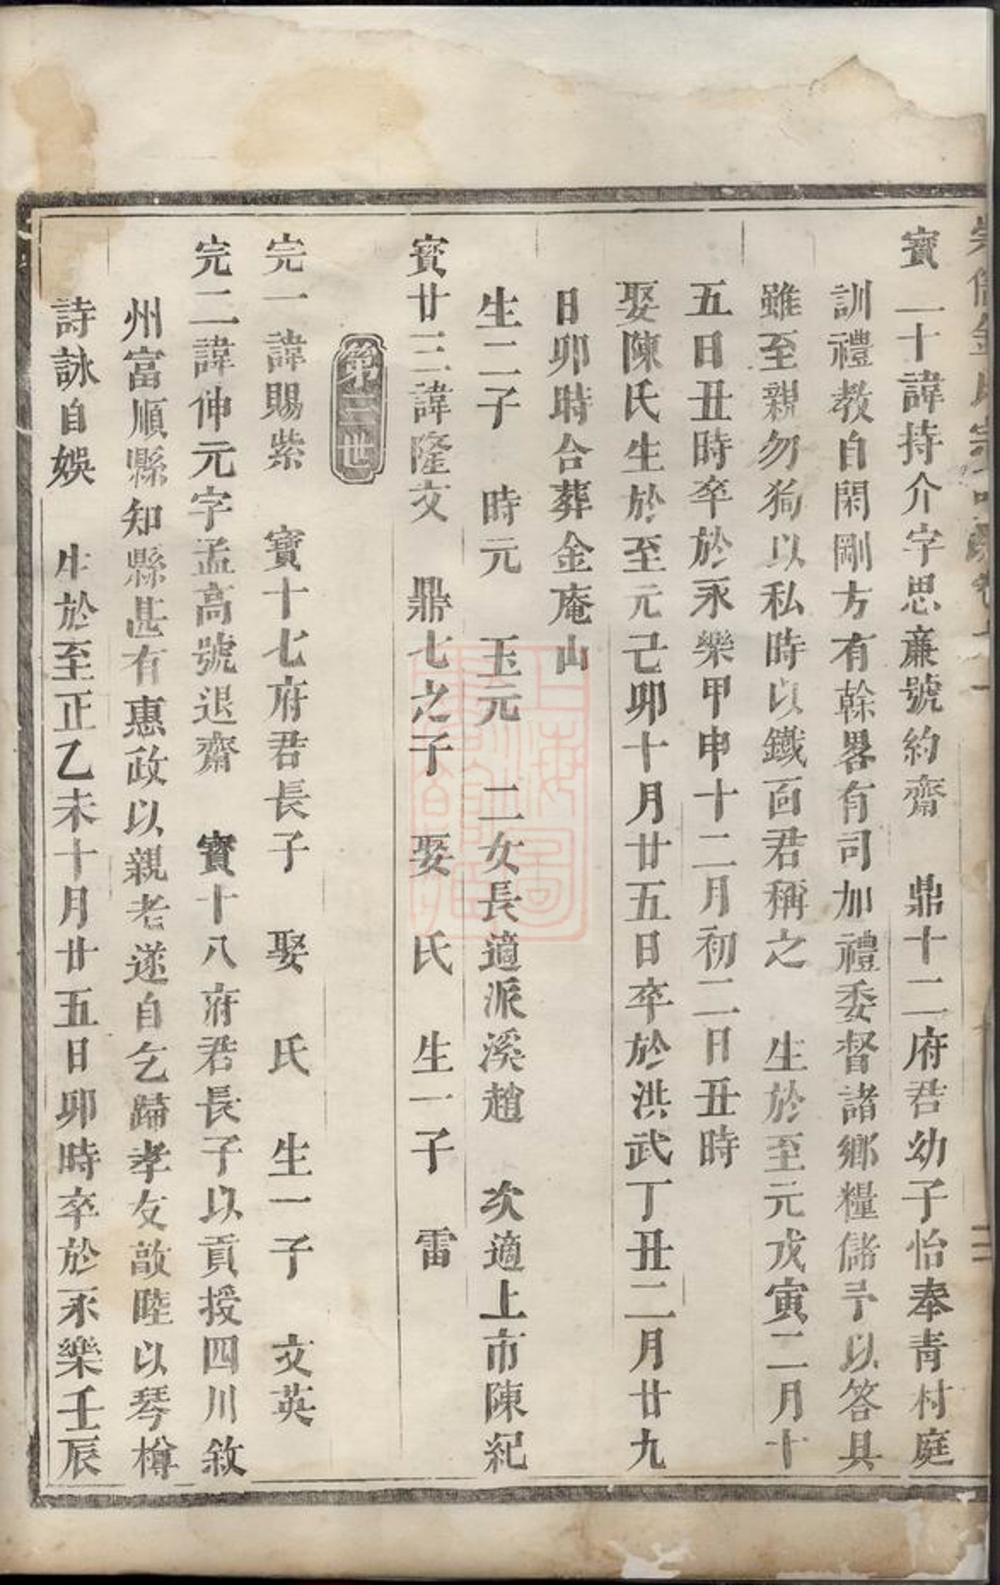 寳二十諱持介字思亷號約齋　鼎十二府君幼子怡奉青村庭
訓禮教自閑剛方有幹畧有司加禮委督諸鄉糧儲予以答具
雖至親勿狥以私時以鐵面君稱之　生於至元戊寅二月十
五日丑時卒於永樂甲申十二月初二日丑時
娶陳氏生於至元己卯十月廿五日卒於洪武丁丑二月廿九
日卯時合葬金庵山
生二子　時元　玉元　二女長適派溪趙　次適上市陳紀
寳廿三諱隆交　鼎七之子　娶　氏　生一子　雷
第三世
完一諱賜紫　寶十七府君長子　娶　氏　生一子　文英
完二諱伸元字孟高號退齋　寳十八府君長子以貢授四川敘
州富順縣知縣甚有惠政以親老遂自乞歸孝友敦睦以琴樽
詩詠自娛　生於至正乙未十月廿五日卯時卒於永樂壬辰